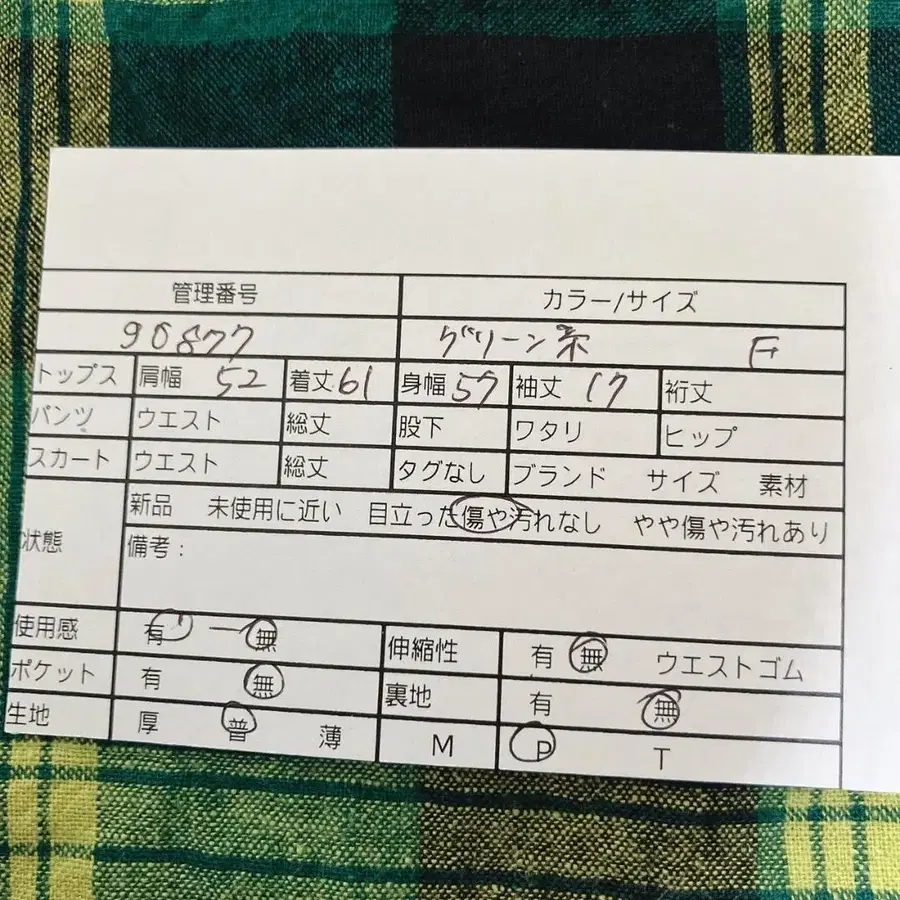 管理番号 カラー/サイズ
90877 グリーン系 F
トップス 肩幅 52 着丈 61 身幅 57 袖丈 17 裄丈
パンツ ウエスト 総丈 股下 ワタリ ヒップ
スカート ウエスト 総丈 タグなし ブランド サイズ 素材
状態 新品 未使用に近い 目立った傷や汚れなし やや傷や汚れあり
備考:
使用感 有 無 伸縮性 有 無 ウエストゴム
ポケット 有 無 裏地 有 無
生地 厚 普 薄 M P T